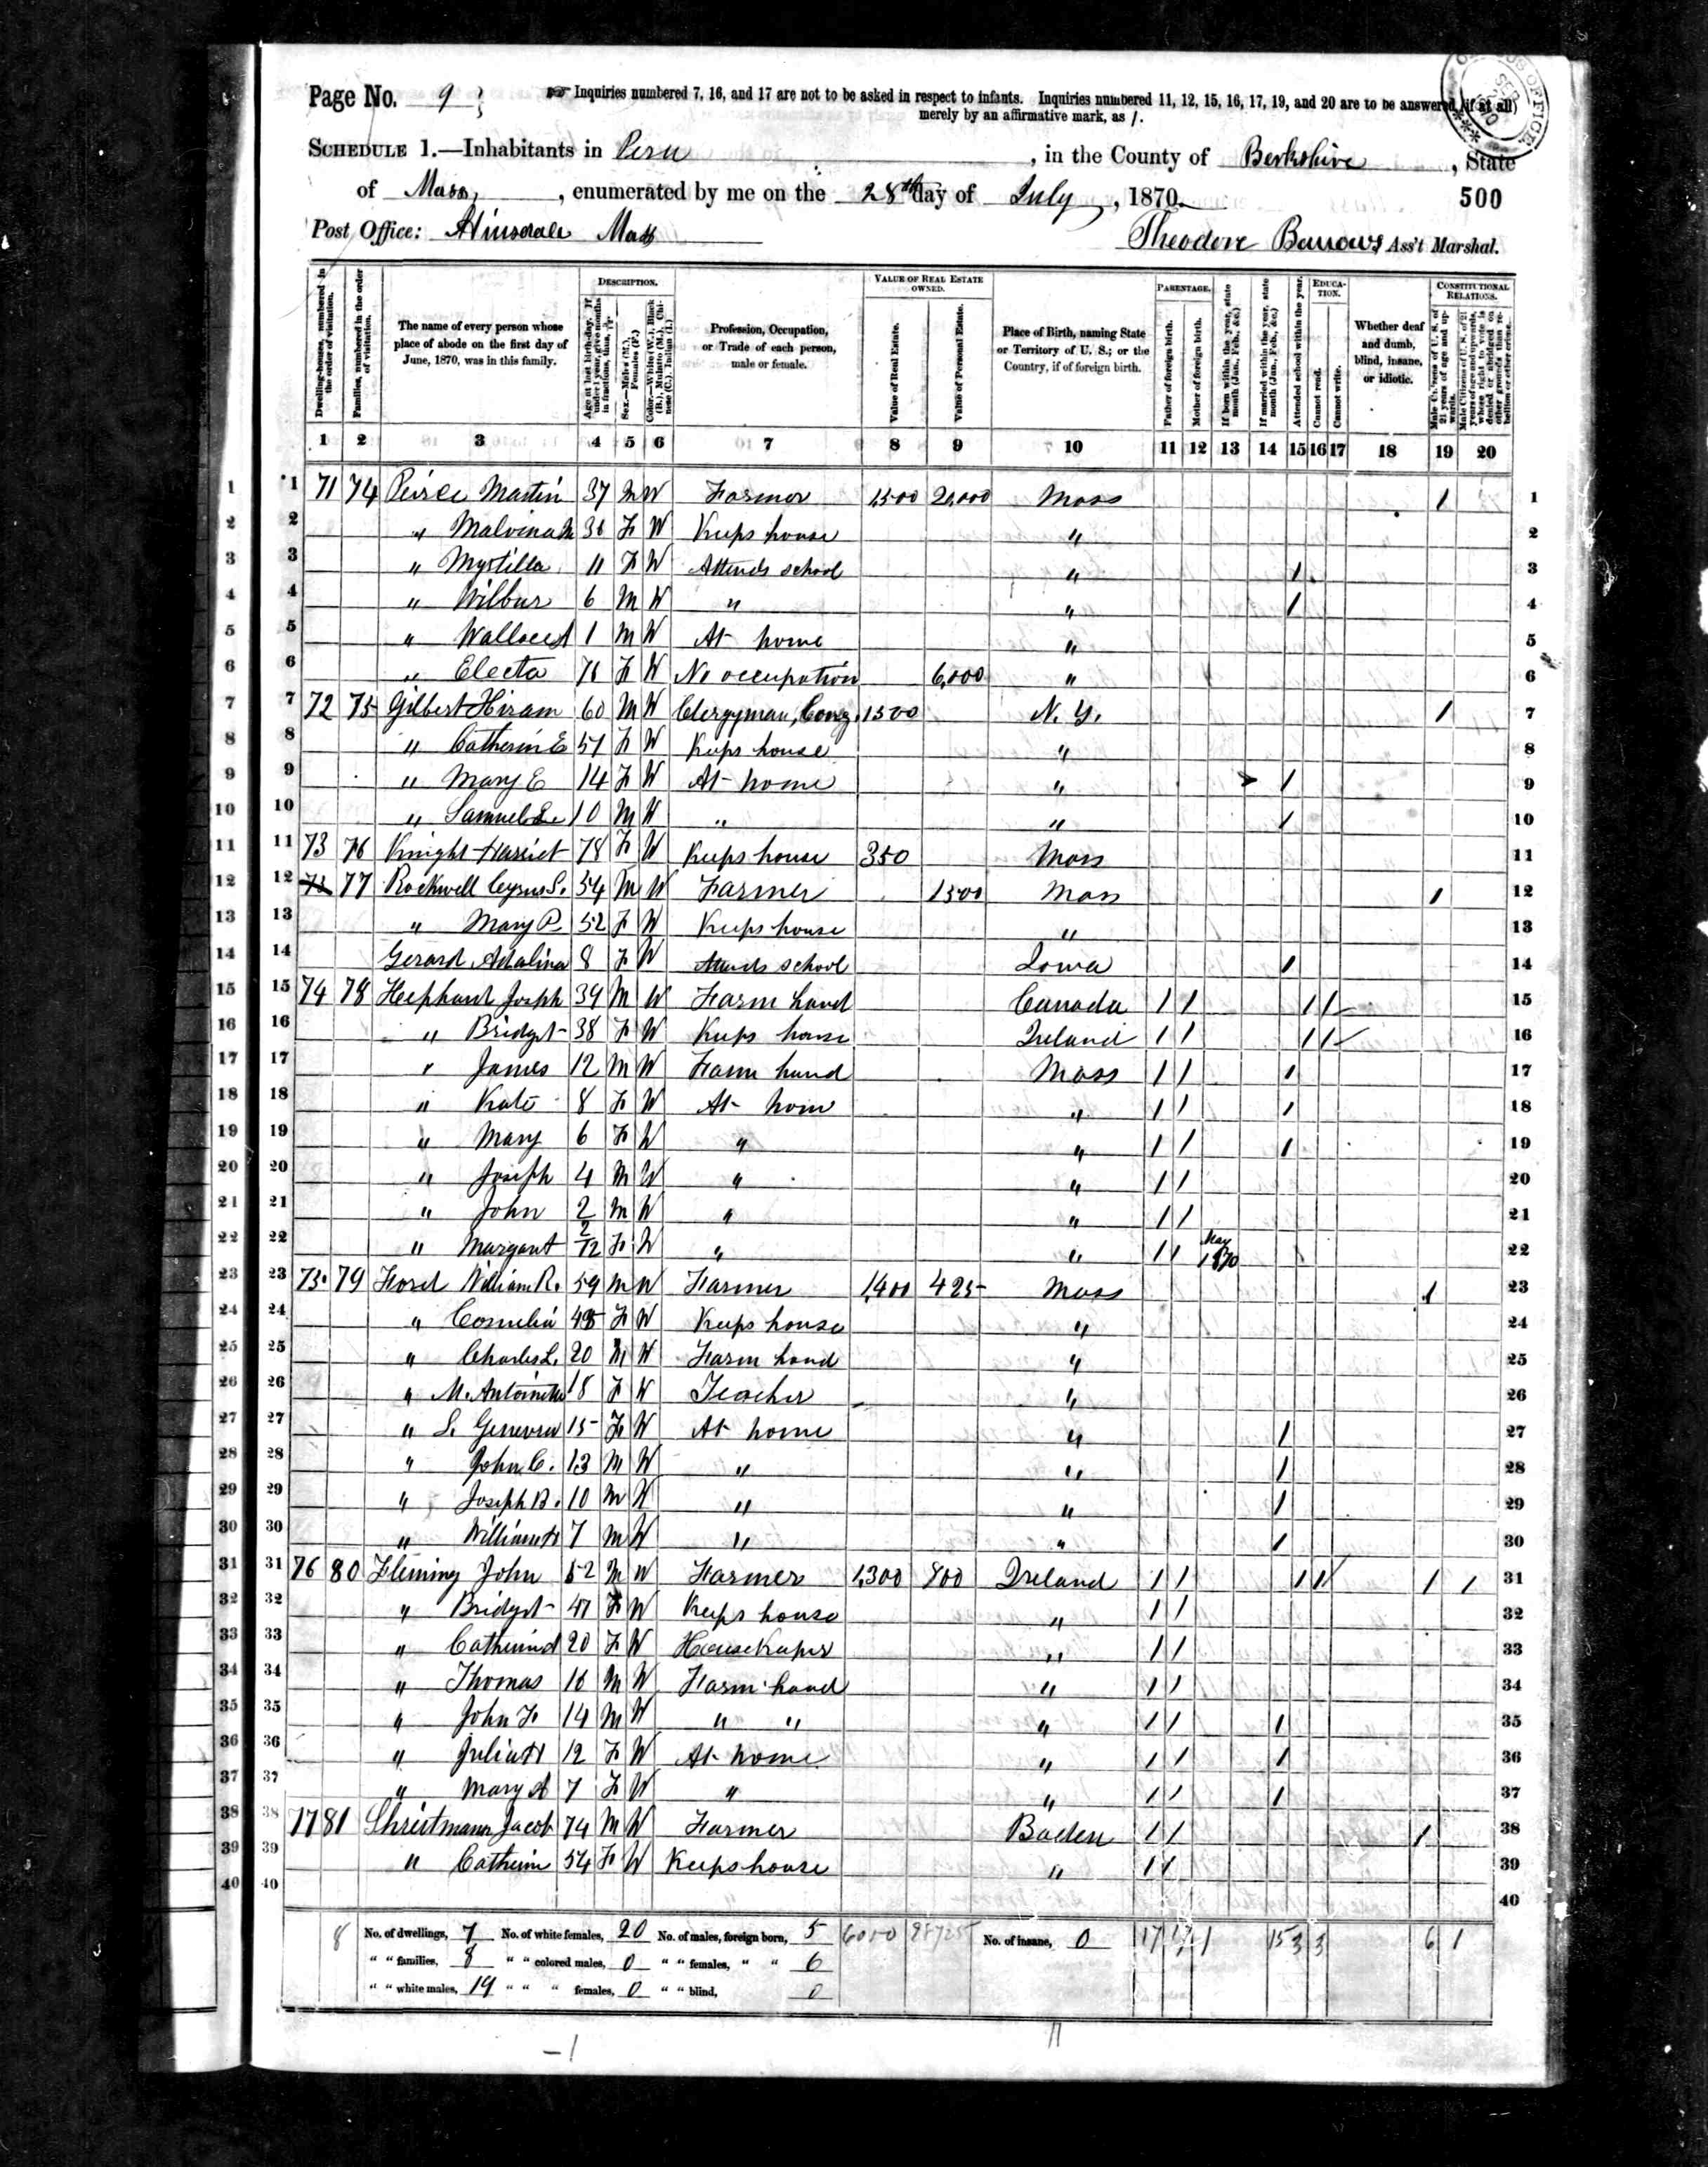 Page No. 9
Inquiries numbered 7, 16, and 17 are not to be asked in respect to infants. Inquiries numbered 11, 12, 15, 16, 17, 19, and 20 are to be answered (if at all)
merely by an affirmative mark, as /.
SCHEDULE 1.—Inhabitants in Peru, in the County of Berkshire, State
of Mass, enumerated by me on the 28th day of July, 1870. 500
Post Office: Hinsdale Mass Theodore Barrows, Ass't Marshal.
DESCRIPTION. VALUE OF REAL ESTATE OWNED. PARENTAGE. EDUCATION. CONSTITUTIONAL RELATIONS.
Dwelling-houses, numbered in the order of visitation.
Families, numbered in the order of visitation.
The name of every person whose place of abode on the first day of June, 1870, was in this family.
Age at last birth-day. If under 1 year, give months in fractions, thus, 3/12.
Sex.—Males (M.), Females (F.)
Color.—White (W.), Black (B.), Mulatto (M.), Chinese (C.), Indian (I.)
Profession, Occupation, or Trade of each person, male or female.
Value of Real Estate.
Value of Personal Estate.
Place of Birth, naming State or Territory of U. S.; or the Country, if of foreign birth.
Father of foreign birth.
Mother of foreign birth.
If born within the year, state month (Jan., Feb., &c.)
If married within the year, state month (Jan., Feb., &c.)
Attended school within the year.
Cannot read.
Cannot write.
Whether deaf and dumb, blind, insane, or idiotic.
Male Citizens of U. S. of 21 years of age and upwards.
Male Citizens of U. S. of 21 years of age and upwards, whose right to vote is denied or abridged on other grounds than rebellion or other crime.
1 2 3 4 5 6 7 8 9 10 11 12 13 14 15 16 17 18 19 20
1 71 74 Peirce Martin 37 M W Farmer 1,500 20,000 Mass / 1
2 " Malvina M 36 F W Keeps house " 2
3 " Myrtilla 11 F W Attends school " / 3
4 " Wilbur 6 M W " " / 4
5 " Wallace A 1 M W At home " 5
6 " Electa 71 F W No occupation 6,000 " 6
7 72 75 Gilbert Hiram 60 M W Clergyman, Cong. 1500 N. Y. / 7
8 " Catherin E 51 F W Keeps house " 8
9 " Mary E 14 F W At home " / 9
10 " Samuel L 10 M W " " / 10
11 73 76 Knight Harriet 78 F W Keeps house 350 Mass 11
12 73 77 Rockwell Cyrus S. 54 M W Farmer 1500 Mass / 12
13 " Mary P. 52 F W Keeps house " 13
14 Gerard Adalina 8 F W Attends school Iowa / 14
15 74 78 Hephant Joseph 39 M W Farm hand Canada / / / / 15
16 " Bridget 38 F W Keeps house Ireland / / / / 16
17 " James 12 M W Farm hand Mass / / / 17
18 " Kate 8 F W At hom " / / / 18
19 " Mary 6 F W " " / / / 19
20 " Joseph 4 M W " " / / 20
21 " John 2 M W " " / / 21
22 " Margaret 2/12 F W " " / / May 1870 22
23 75 79 Ford William R. 59 M W Farmer 1,400 425 Mass / 23
24 " Cornelia 48 F W Keeps house " 24
25 " Charles L. 20 M W Farm hand " 25
26 " M. Antoinette 18 F W Teacher " 26
27 " L. Genevra 15 F W At home " / 27
28 " John C. 13 M W " " / 28
29 " Joseph B. 10 M W " " / 29
30 " William H 7 M W " " / 30
31 76 80 Fleming John 52 M W Farmer 1,300 800 Ireland / / / / / / 31
32 " Bridget 47 F W Keeps house " / / 32
33 " Catherine 20 F W House Keeper " / / 33
34 " Thomas 16 M W Farm hand " / / 34
35 " John F. 14 M W " " " / / / 35
36 " Julia A 12 F W At home " / / / 36
37 " Mary A 7 F W " " / / / 37
38 77 81 Shreitmann Jacob 74 M W Farmer Baden / / / 38
39 " Catherin 54 F W Keeps house " / / 39
40 40
8 No. of dwellings, 7 No. of white females, 20 No. of males, foreign born, 5 6050 28725 No. of insane, 0 17 17 1 15 3 3 6 1
" " families, 8 " " colored males, 0 " " females, " " 6
" " white males, 19 " " " females, 0 " " blind, 0